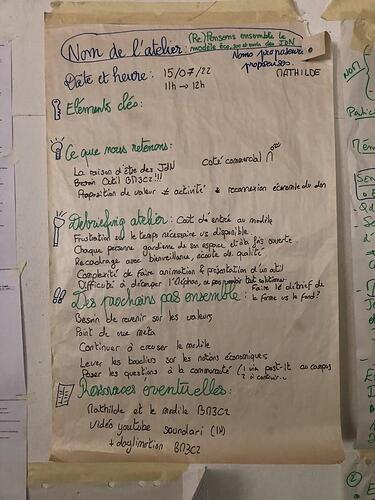 Nom de l'atelier: (Re)Pensons ensemble le
modèle éco, soc et envir des JDN
Date et heure: 15/07/22
11h → 12h
Noms proposeurs
proposeuses.
MATHILDE
Eléments clés:
Ce que nous retenons:
La raison d'être des JDN
côté commercial
Besoin Outil BM3C2 !!!
Proposition de valeur ≠ activité & reconnexion économie du don
Debriefing atelier: Coût de entré au modèle
Frustration sur le temps nécessaire vs disponible.
Chaque personne gardienne de son espace et à la fois ouverte
Recadrage avec bienveillance, écoute de qualité
Complexité de faire animation & présentation d'un outil
Difficulté à
Faire le débrief de
la forme vs le fond?
Des prochains pas ensemble:
Besoin de revenir sur les valeurs
Point de vue méta
Continuer à creuser le modèle
Lever les boucliers sur les notions économiques
Poser les questions à la communauté (1 via post-it au campus
2 à continuer..
Ressources éventuelles:
Mathilde et le modèle BM3C2
Vidéo youtube soundari (1H)
BM3C2